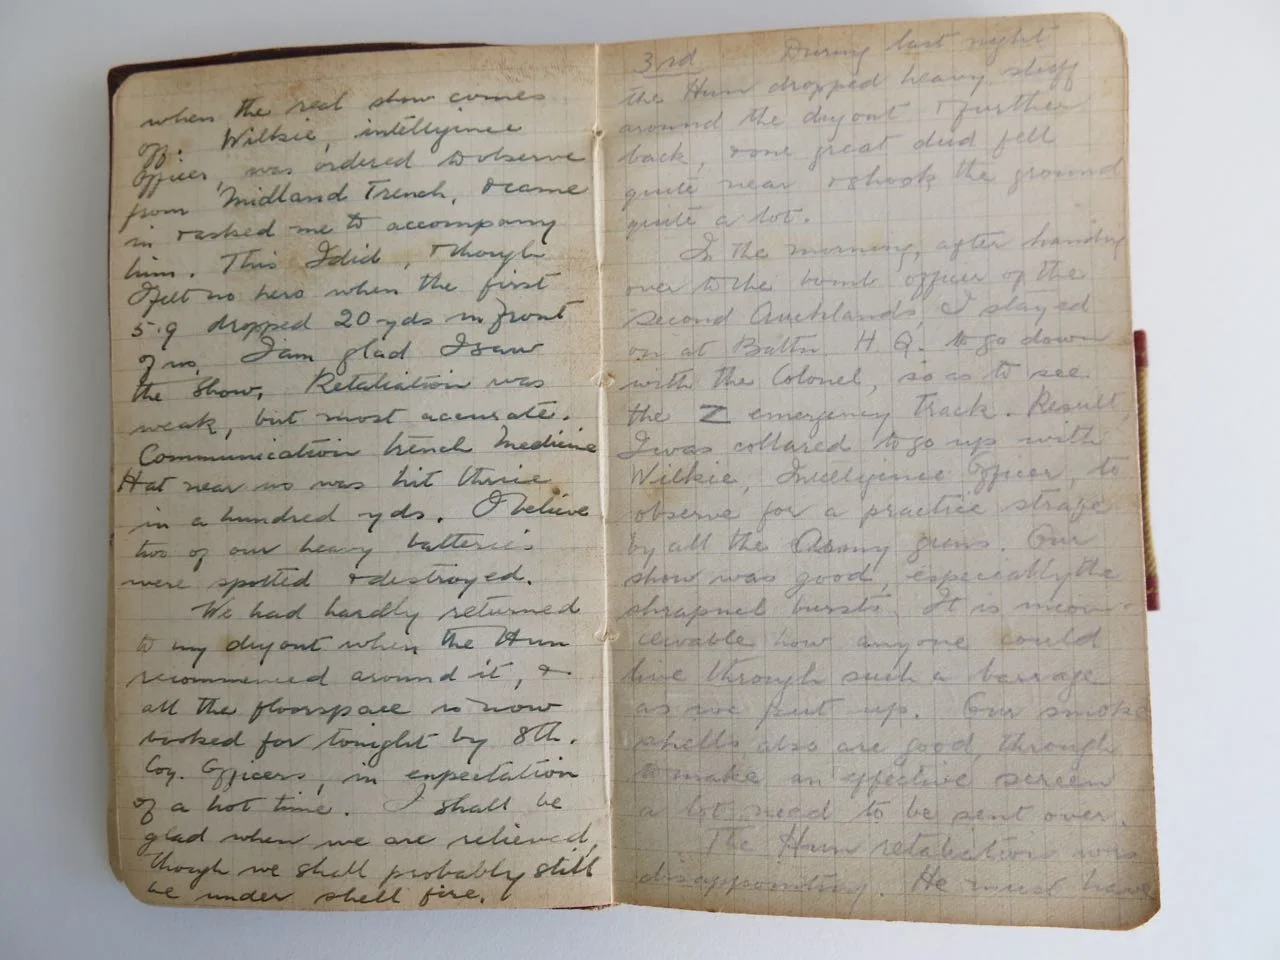 when the real show comes
off. Wilkie, intelligence
Officer, was ordered to observe
from Midland Trench, & came
in & asked me to accompany
him. This I did, & though
I felt no hero when the first
5.9 dropped 20 yds in front
of us, I am glad I saw
the show. Retaliation was
weak, but most accurate.
Communication trench Medicine
Hat near us was hit thrice
in a hundred yds. I believe
two of our heavy batteries
were spotted & destroyed.
We had hardly returned
to my dugout when the Hun
recommenced around it, &
all the floorspace is now
booked for tonight by 8th.
Coy. Officers, in expectation
of a hot time. I shall be
glad when we are relieved,
though we shall probably still
be under shell fire.
3rd During last night
the Hun dropped heavy stuff
around the dugout & further
back, & one great dud fell
quite near & shook the ground
quite a lot.
In the morning, after handing
over to the bomb officer of the
second Aucklands, I stayed
on at Battn. H.Q. to go down
with the Colonel, so as to see
the Z emergency track. Result,
I was collared to go up with
Wilkie, Intelligence Officer, to
observe for a practice strafe
by all the Army guns. Our
show was good, especially the
shrapnel bursts. It is incon-
ceivable how anyone could
live through such a barrage
as we put up. Our smoke
shells also are good, though
to make an effective screen
a lot need to be sent over.
The Hun retaliation was
disappointing. He must have